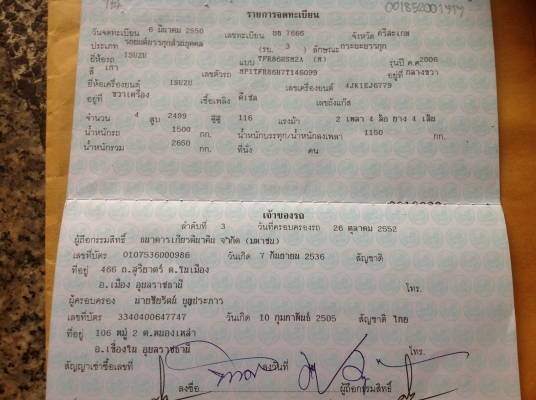 รายการจดทะเบียน
วันจดทะเบียน 6 มีนาคม 2550 เลขทะเบียน 7666 จังหวัด ศรีสะเกษ
ประเภท รถยนต์บรรทุกส่วนบุคคล (รย. 3 ) ลักษณะ กระบะบรรทุก
ยี่ห้อรถ ISUZU แบบ TFR86HSM2A (M) รุ่นปี ค.ศ.2006
สี เทา เลขตัวรถ MP1TFR86H7T146099 อยู่ที่ กลางขวา
ยี่ห้อเครื่องยนต์ ISUZU เลขเครื่องยนต์ 4JK1EJ6779
อยู่ที่ ขวาเครื่อง เชื้อเพลิง ดีเซล เลขถังแก๊ส
จำนวน 4 สูบ 2499 ซีซี 116 แรงม้า 2 เพลา 4 ล้อ ยาง 4 เส้น
น้ำหนักรถ 1500 กก. น้ำหนักบรรทุก/น้ำหนักลงเพลา 1150 กก.
น้ำหนักรวม 2650 กก. ที่นั่ง คน
เจ้าของรถ
ลำดับที่ 3 วันที่ครอบครองรถ 26 ตุลาคม 2552
ผู้ถือกรรมสิทธิ์ ธนาคารเกียรตินาคิน จำกัด (มหาชน)
เลขที่บัตร 0107536000986 วันเกิด 7 กันยายน 2536 สัญชาติ
ที่อยู่ 466 ถ.สุริยาตร์ ต.ในเมือง
อ.เมือง อุบลราชธานี โทร.
ผู้ครอบครอง นายชัยรัตน์ บุญประภาว
เลขที่บัตร 3340400647747 วันเกิด 10 กุมภาพันธ์ 2505 สัญชาติ ไทย
ที่อยู่ 106 หมู่ 2 ต.หนองเหล่า
อ.เขื่องใน อุบลราชธานี โทร.
สัญญาเช่าซื้อเลขที่ ลงวันที่
ลงชื่อ ผู้ถือกรรมสิทธิ์